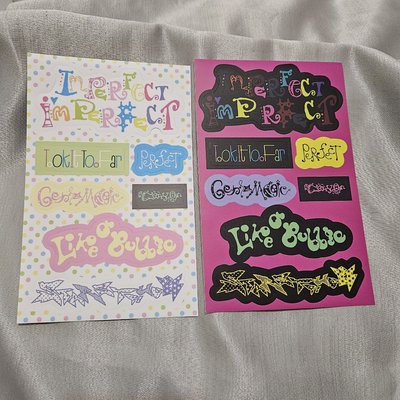 ImPERFECT
I'mPERFECT
TookItTooFar PERFECT
Like a Bubble
ImPERFECT
I'mPERFECT
TookItTooFar PERFECT
Like a Bubble